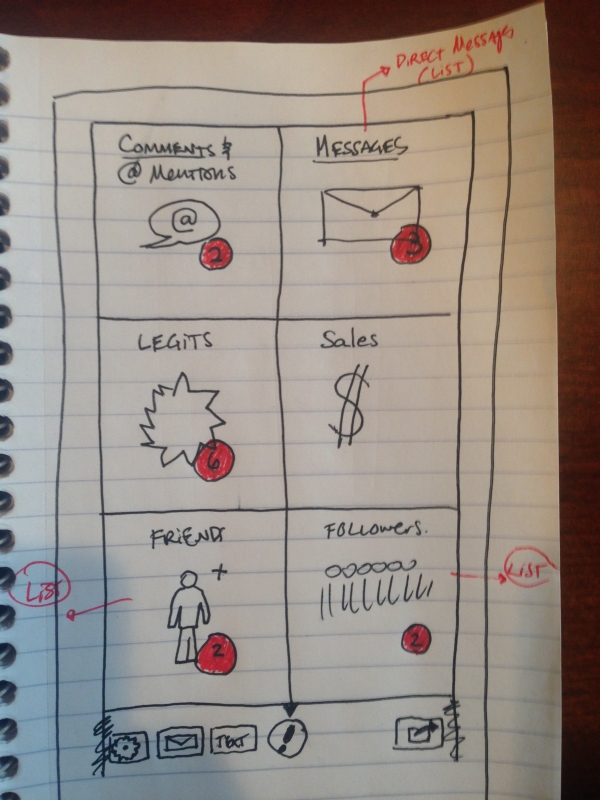 DIRECT MESSAGE
(LIST)
COMMENTS &
@ MENTIONS
@
2
MESSAGES
3
LEGITS
6
Sales
$
FRIEND
+
2
FOLLOWERS.
2
LIST
LIST
TEXT
!